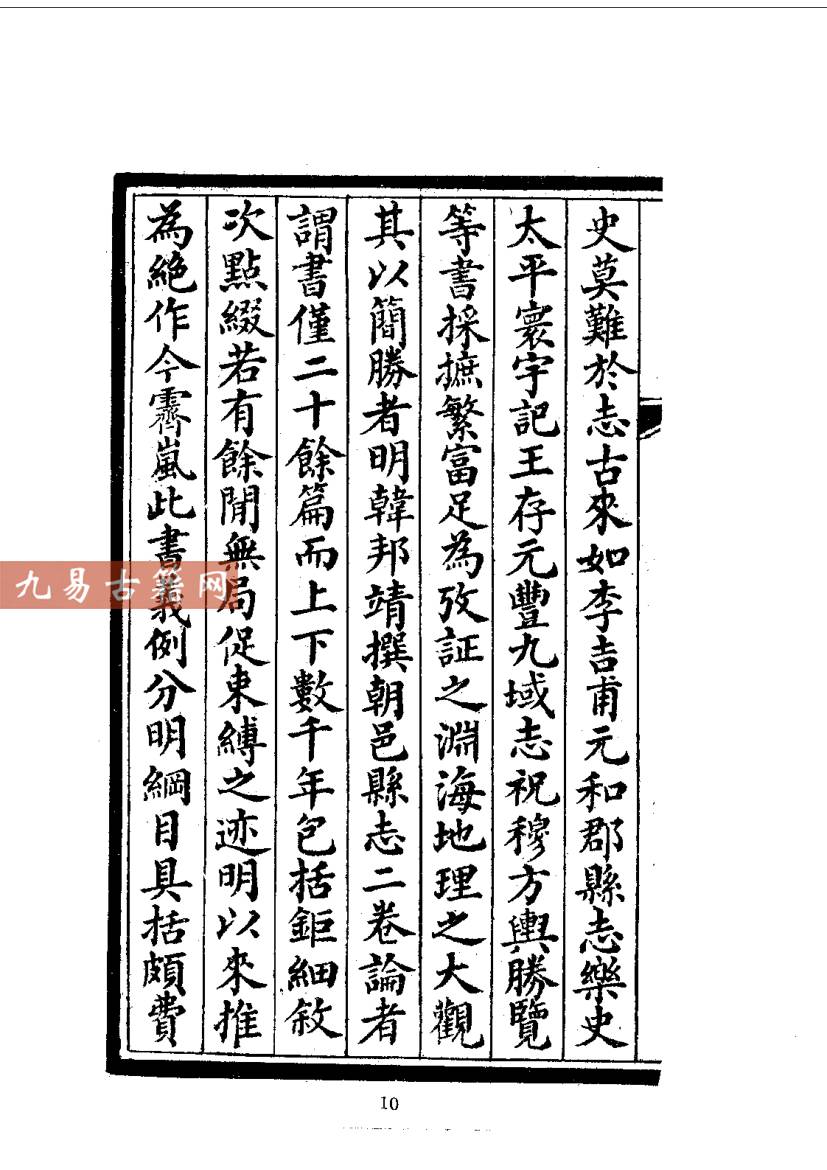 史莫難於志古來如李吉甫元和郡縣志樂史
太平寰宇記王存元豐九域志祝穆方輿勝覽
等書採摭繁富足為攷証之淵海地理之大觀
其以簡勝者明韓邦靖撰朝邑縣志二卷論者
謂書僅二十餘篇而上下數千年包括鉅細敘
次點綴若有餘閒無局促束縛之迹明以來推
為絶作今霽嵐此書義例分明綱目具括頗費
九易古籍网
10